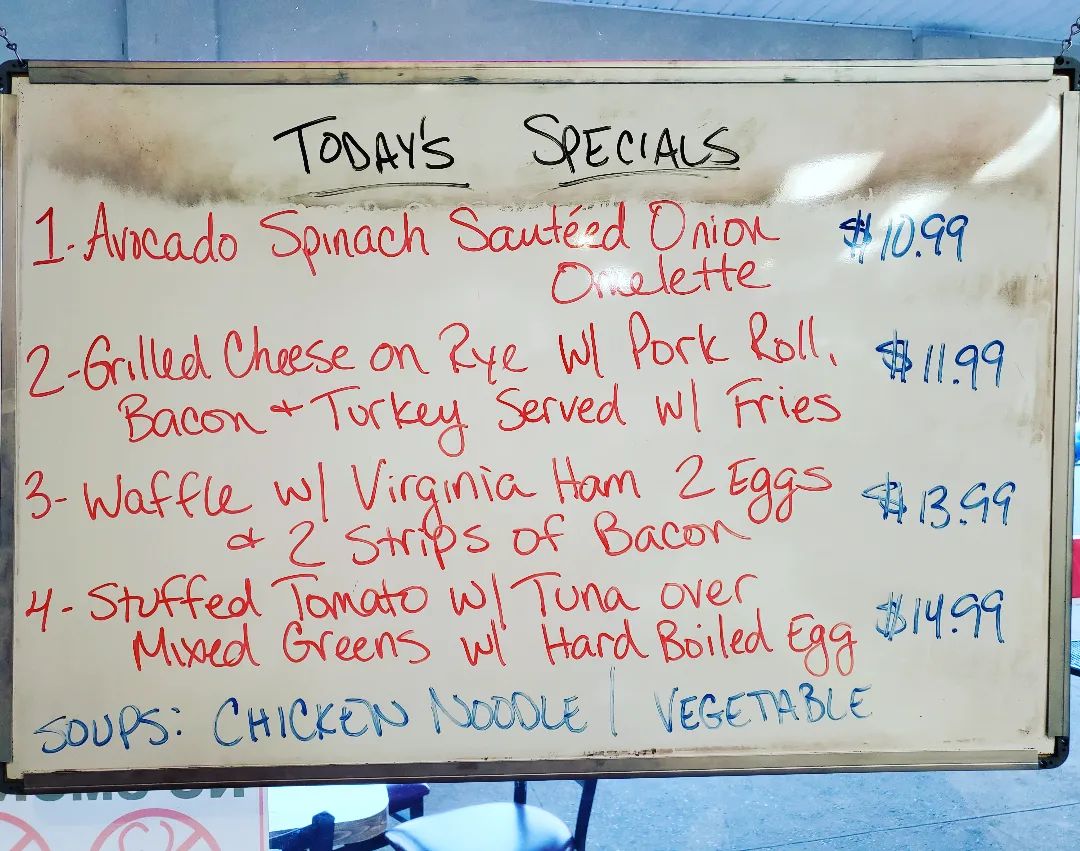 TODAY'S SPECIALS
1- Avocado Spinach Sautéed Onion $10.99
Omelette
2- Grilled Cheese on Rye w/ Pork Roll, $11.99
Bacon & Turkey Served w/ Fries
3- Waffle w/ Virginia Ham 2 Eggs $13.99
& 2 Strips of Bacon
4- Stuffed Tomato w/ Tuna over $14.99
Mixed Greens w/ Hard Boiled Egg
SOUPS: CHICKEN NOODLE | VEGETABLE